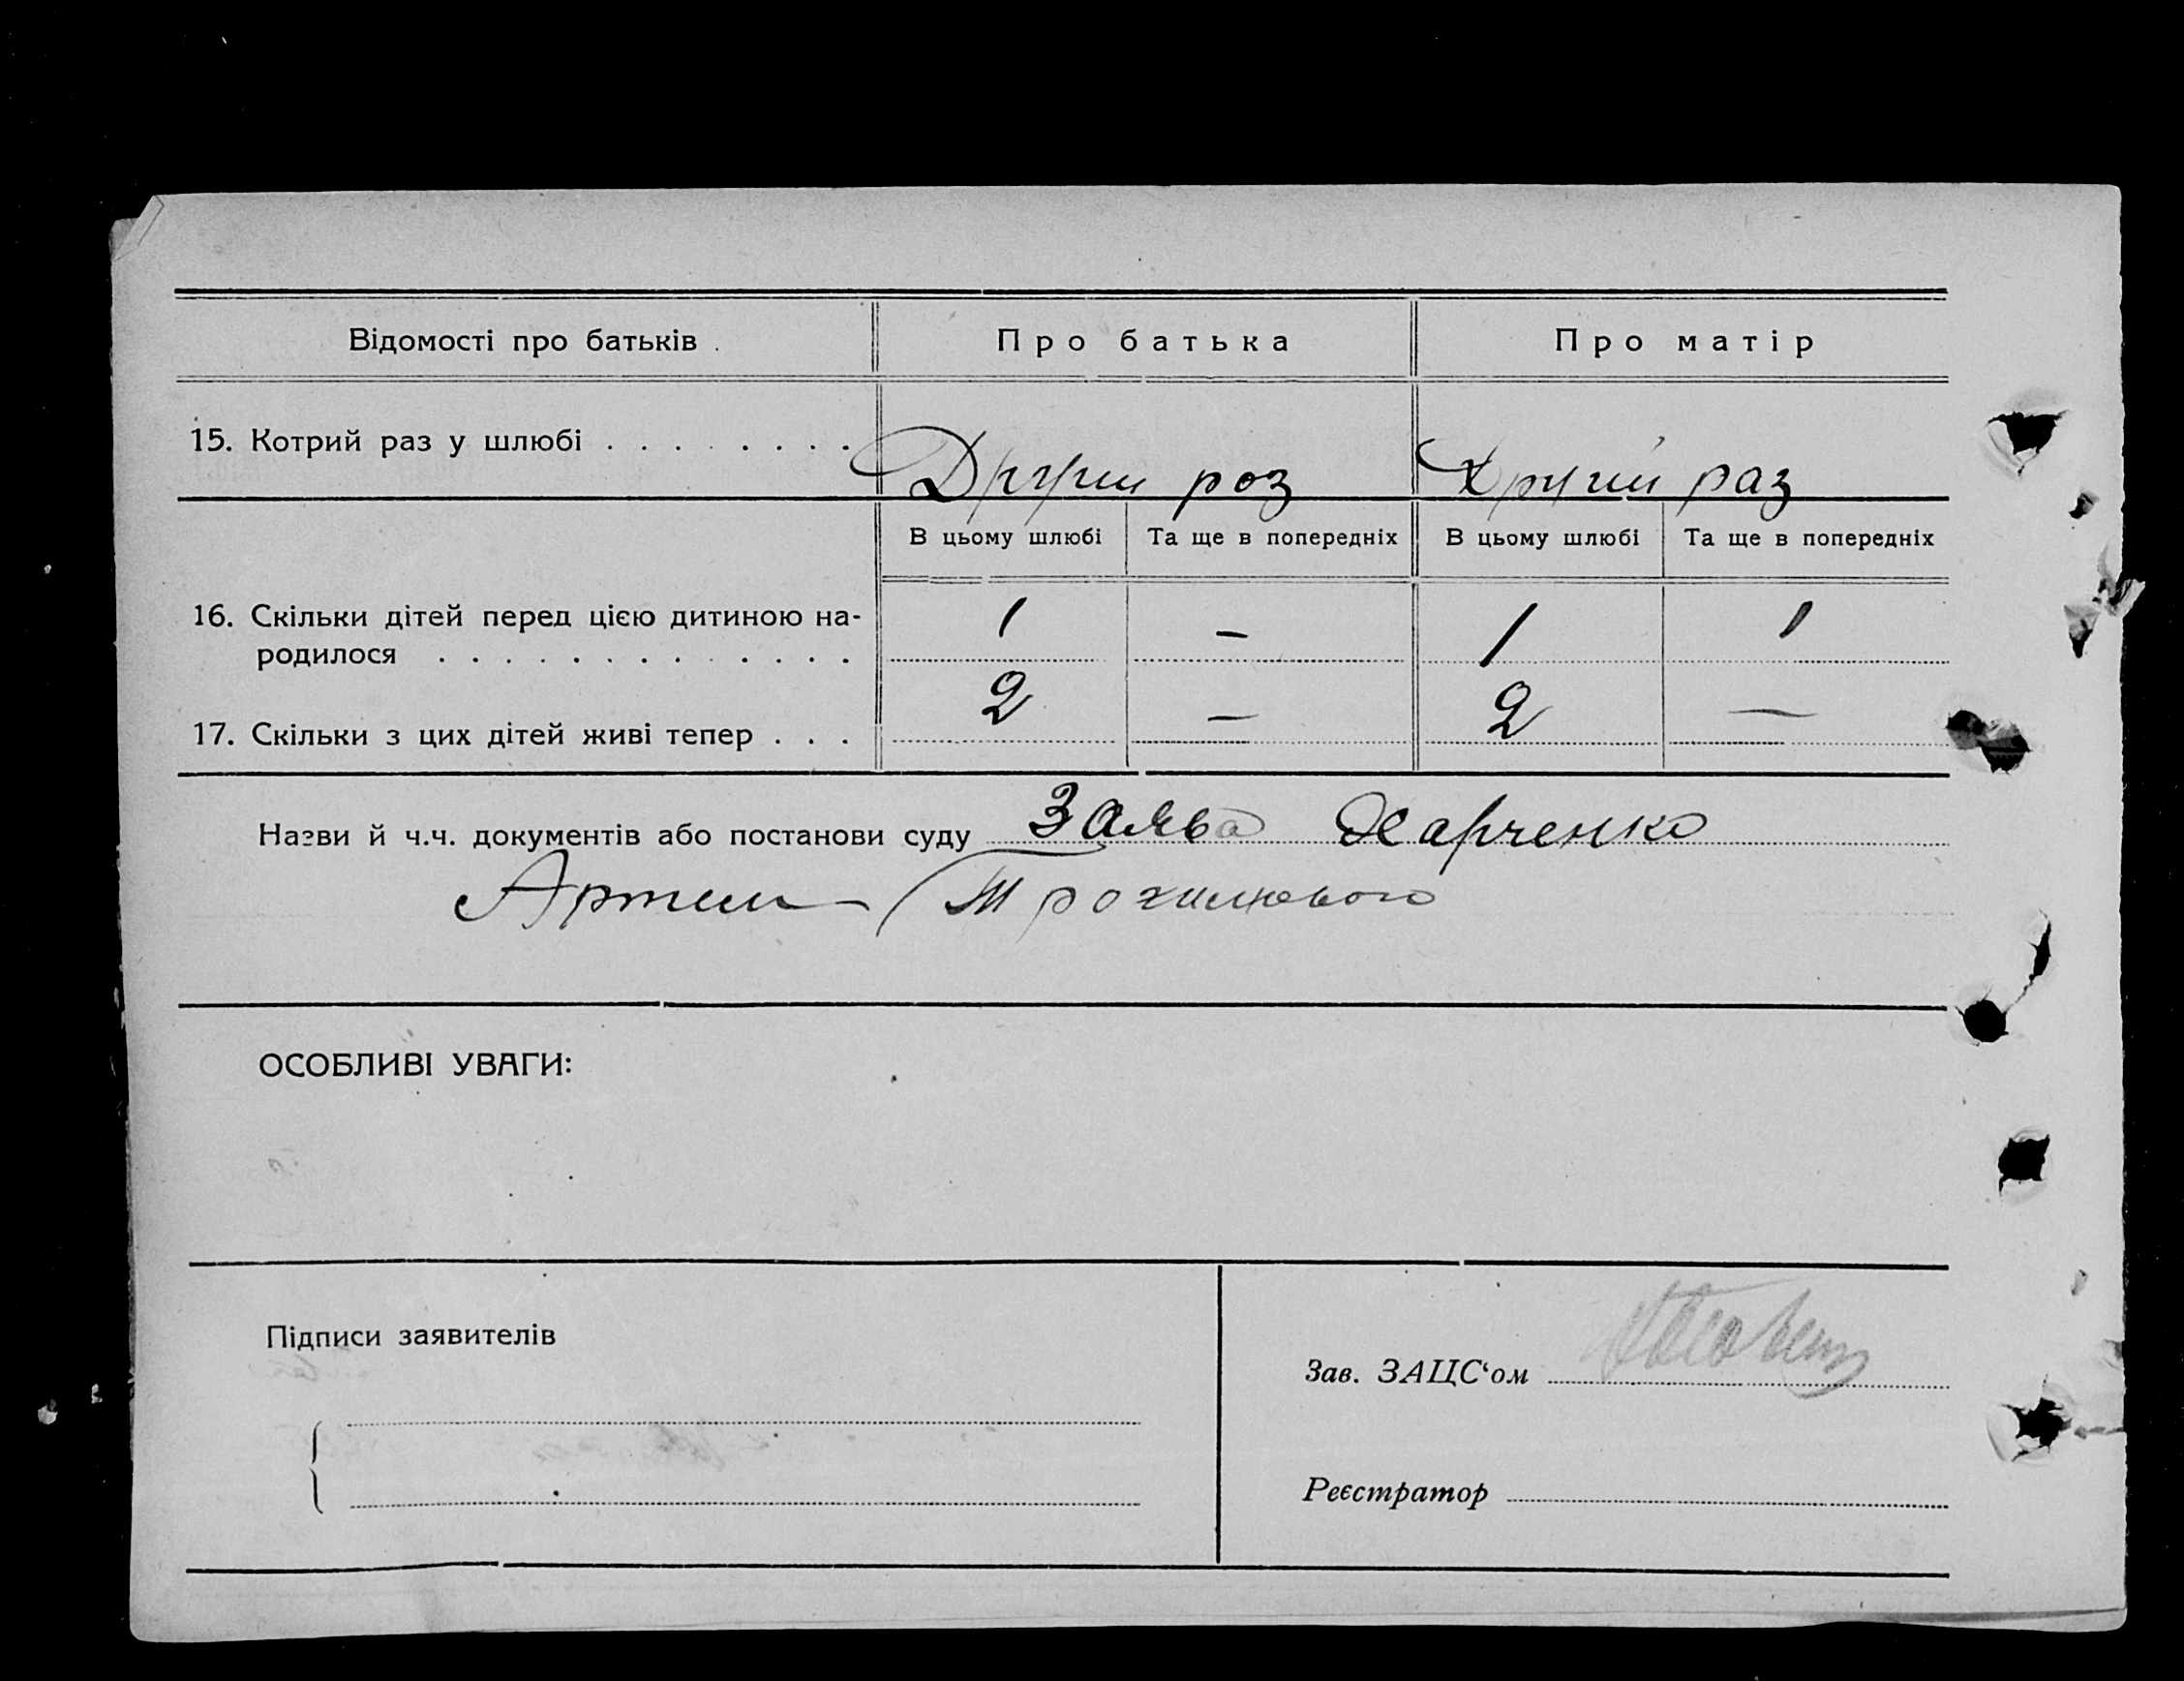 Відомості про батьків Про батька Про матір
15. Котрий раз у шлюбі . . . . . . . . Другий роз Другий раз
В цьому шлюбі Та ще в попередніх В цьому шлюбі Та ще в попередніх
16. Скільки дітей перед цією дитиною на-
родилося . . . . . . . . . . . . . 1 — 1 1
17. Скільки з цих дітей живі тепер . . . 2 — 2 —
Назви й ч.ч. документів або постанови суду Заява Харченко
Артем
ОСОБЛИВІ УВАГИ:
Підписи заявителів
Зав. ЗАЦС‘ом
Реєстратор